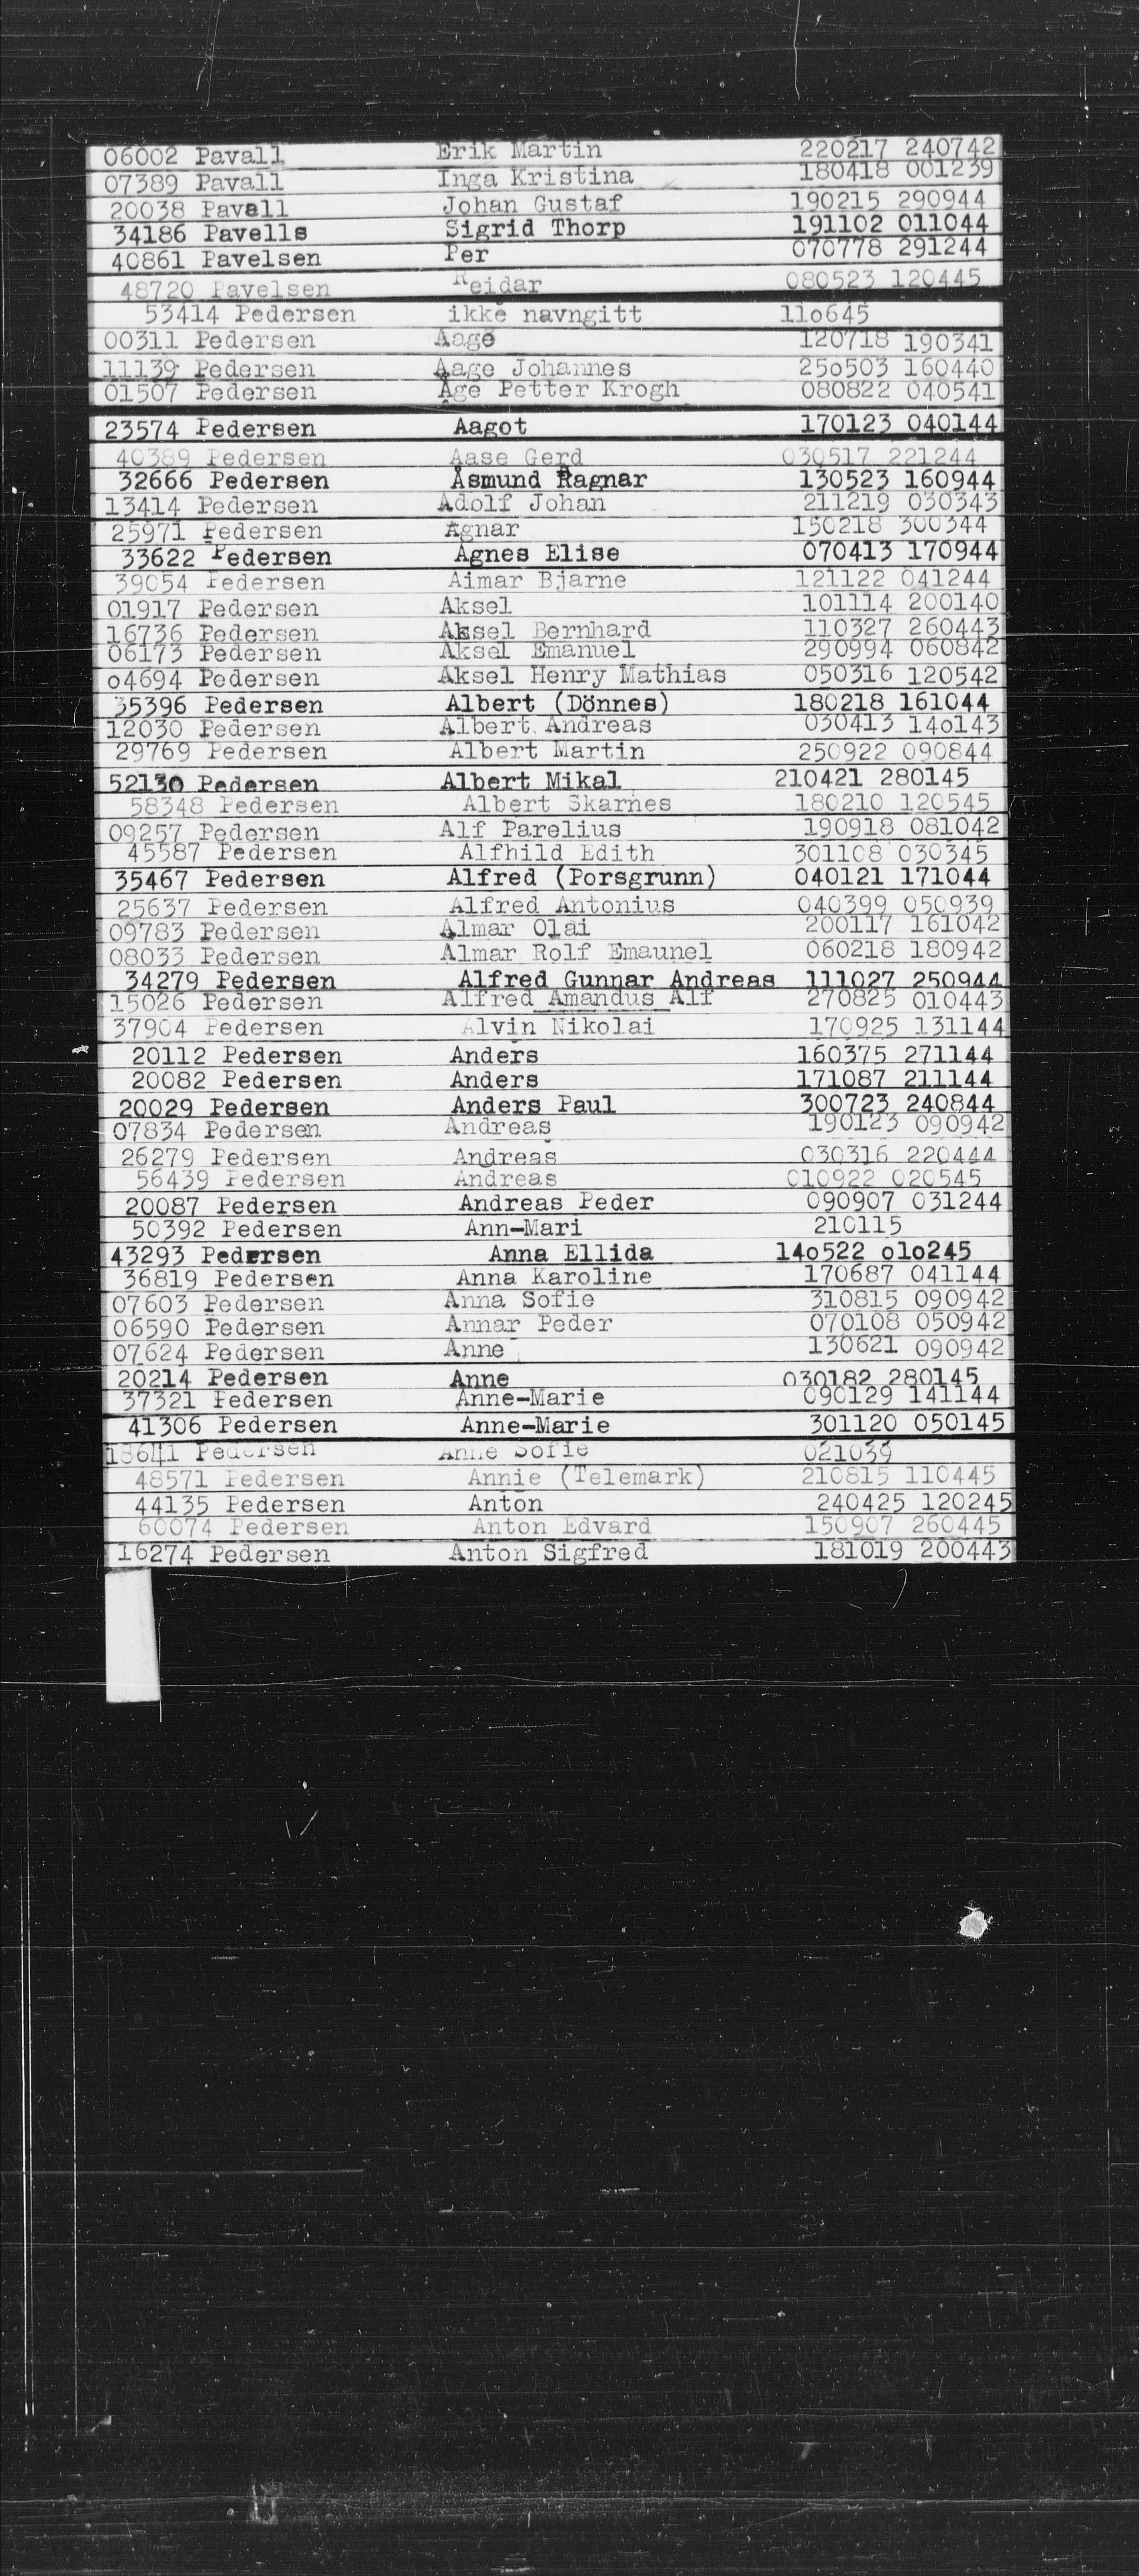 06002 Pavall Erik Martin 220217 240742
07389 Pavall Inga Kristina 180418 001239
20038 Pavall Johan Gustaf 190215 290944
34186 Pavells Sigrid Thorp 191102 011044
40861 Pavelsen Per 070778 291244
48720 Pavelsen Reidar 080523 120445
53414 Pedersen ikke navngitt 11o645
00311 Pedersen Aage 120718 190341
11139 Pedersen Aage Johannes 25o503 160440
01507 Pedersen Åge Petter Krogh 080822 040541
23574 Pedersen Aagot 170123 040144
40389 Pedersen Aase Gerd 030517 221244
32666 Pedersen Åsmund Ragnar 130523 160944
13414 Pedersen Adolf Johan 211219 030343
25971 Pedersen Agnar 150218 300344
33622 Pedersen Agnes Elise 070413 170944
39054 Pedersen Aimar Bjarne 121122 041244
01917 Pedersen Aksel 101114 200140
16736 Pedersen Aksel Bernhard 110327 260443
06173 Pedersen Aksel Emanuel 290994 060842
o4694 Pedersen Aksel Henry Mathias 050316 120542
35396 Pedersen Albert (Dönnes) 180218 161044
12030 Pedersen Albert Andreas 030413 14o143
29769 Pedersen Albert Martin 250922 090844
52130 Pedersen Albert Mikal 210421 280145
58348 Pedersen Albert Skarnes 180210 120545
09257 Pedersen Alf Parelius 190918 081042
45587 Pedersen Alfhild Edith 301108 030345
35467 Pedersen Alfred (Porsgrunn) 040121 171044
25637 Pedersen Alfred Antonius 040399 050939
09783 Pedersen Almar Olai 200117 161042
08033 Pedersen Almar Rolf Emaunel 060218 180942
34279 Pedersen Alfred Gunnar Andreas 111027 250944
15026 Pedersen Alfred Amandus Alf 270825 010443
37904 Pedersen Alvin Nikolai 170925 131144
20112 Pedersen Anders 160375 271144
20082 Pedersen Anders 171087 211144
20029 Pedersen Anders Paul 300723 240844
07834 Pedersen Andreas 190123 090942
26279 Pedersen Andreas 030316 220444
56439 Pedersen Andreas 010922 020545
20087 Pedersen Andreas Peder 090907 031244
50392 Pedersen Ann-Mari 210115
43293 Pedersen Anna Ellida 14o522 o1o245
36819 Pedersen Anna Karoline 170687 041144
07603 Pedersen Anna Sofie 310815 090942
06590 Pedersen Annar Peder 070108 050942
07624 Pedersen Anne 130621 090942
20214 Pedersen Anne 030182 280145
37321 Pedersen Anne-Marie 090129 141144
41306 Pedersen Anne-Marie 301120 050145
18641 Pedersen Anne Sofie 021039
48571 Pedersen Annie (Telemark) 210815 110445
44135 Pedersen Anton 240425 120245
60074 Pedersen Anton Edvard 150907 260445
16274 Pedersen Anton Sigfred 181019 200443